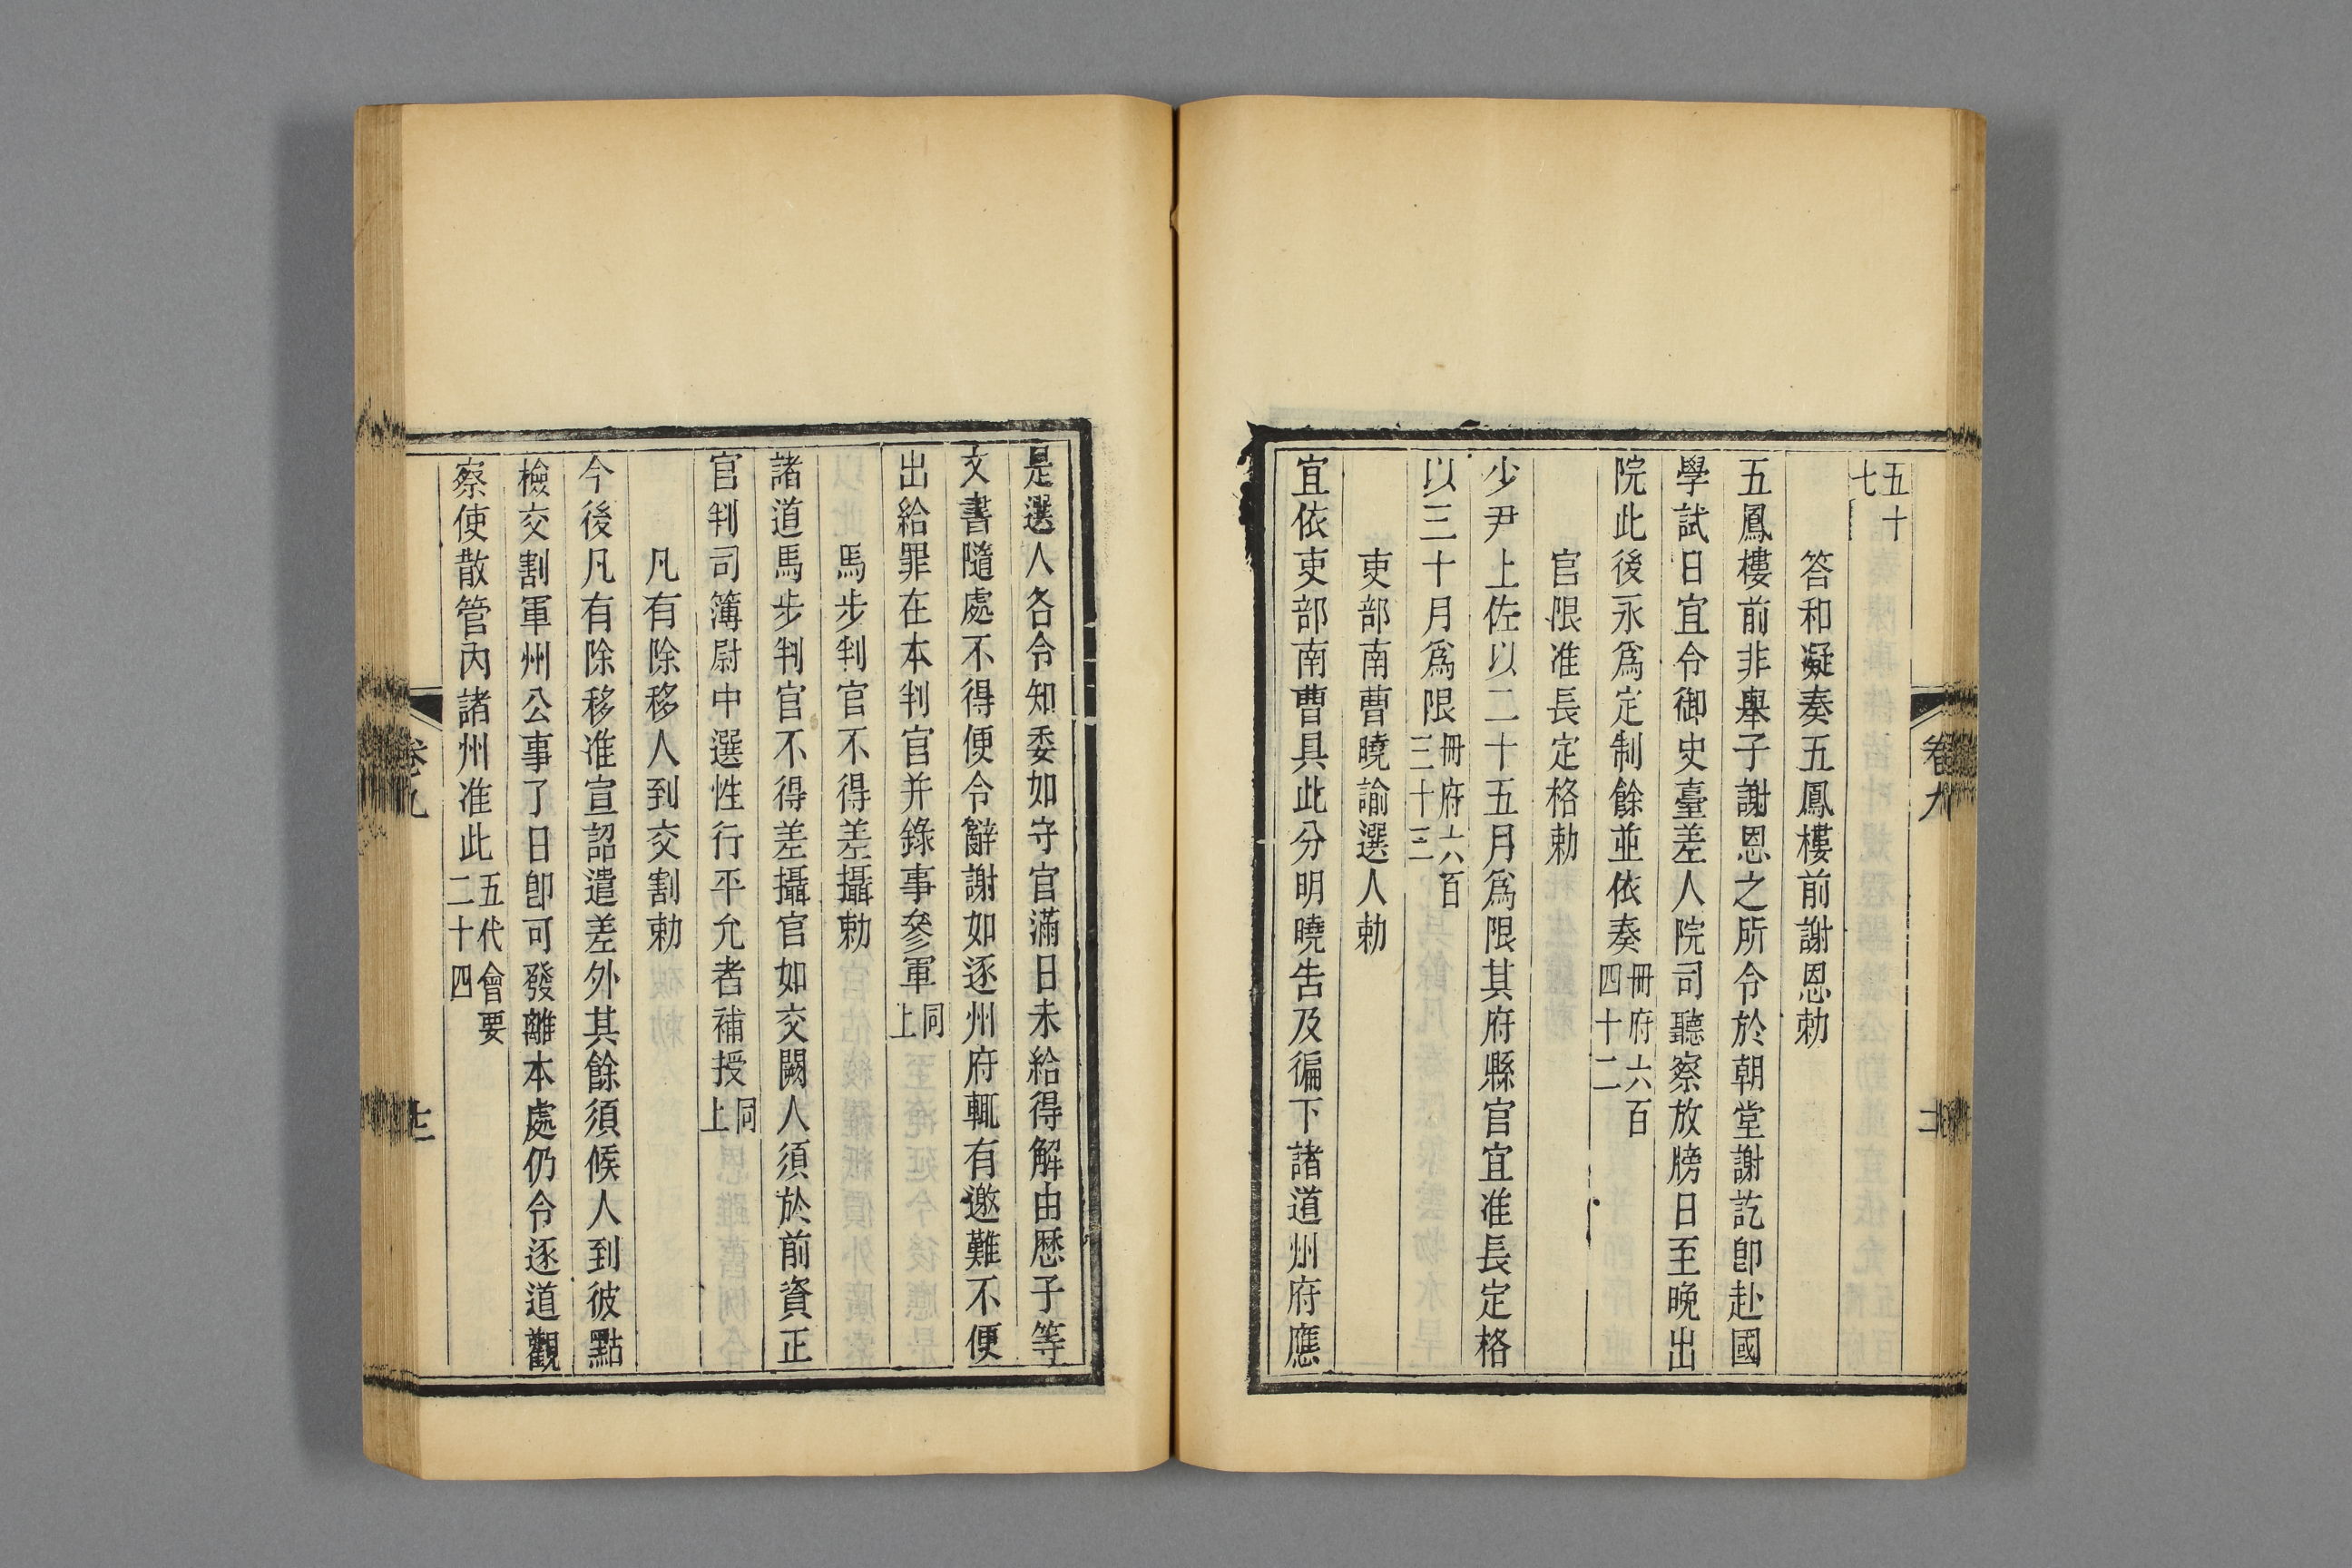 五十
七
答和凝奏五鳳樓前謝恩勅
五鳳樓前非舉子謝恩之所令於朝堂謝訖卽赴國
學試日宜令御史臺差人院司聽察放牓日至晚出
院此後永爲定制餘並依奏冊府六百四十二
官限准長定格勅
少尹上佐以二十五月爲限其府縣官宜准長定格
以三十月爲限冊府六百三十三
吏部南曹曉諭選人勅
宜依吏部南曹具此分明曉吿及徧下諸道州府應
卷九
是選人各令知委如守官滿日未給得解由歷子等
文書隨處不得便令辭謝如逐州府輒有邀難不便
出給罪在本判官并錄事參軍同上
馬步判官不得差攝勅
諸道馬步判官不得差攝官如交闕人須於前資正
官判司簿尉中選性行平允者補授同上
凡有除移人到交割勅
今後凡有除移准宣詔遣差外其餘須候人到彼點
檢交割軍州公事了日卽可發離本處仍令逐道觀
察使散管內諸州准此五代會要二十四
卷九